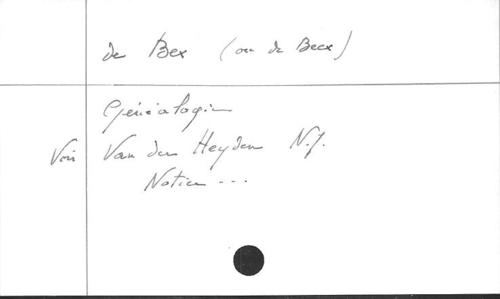 de Bex (ou de Beex)
Généalogie
Voir Van den Heyden N.J.
Notice ...